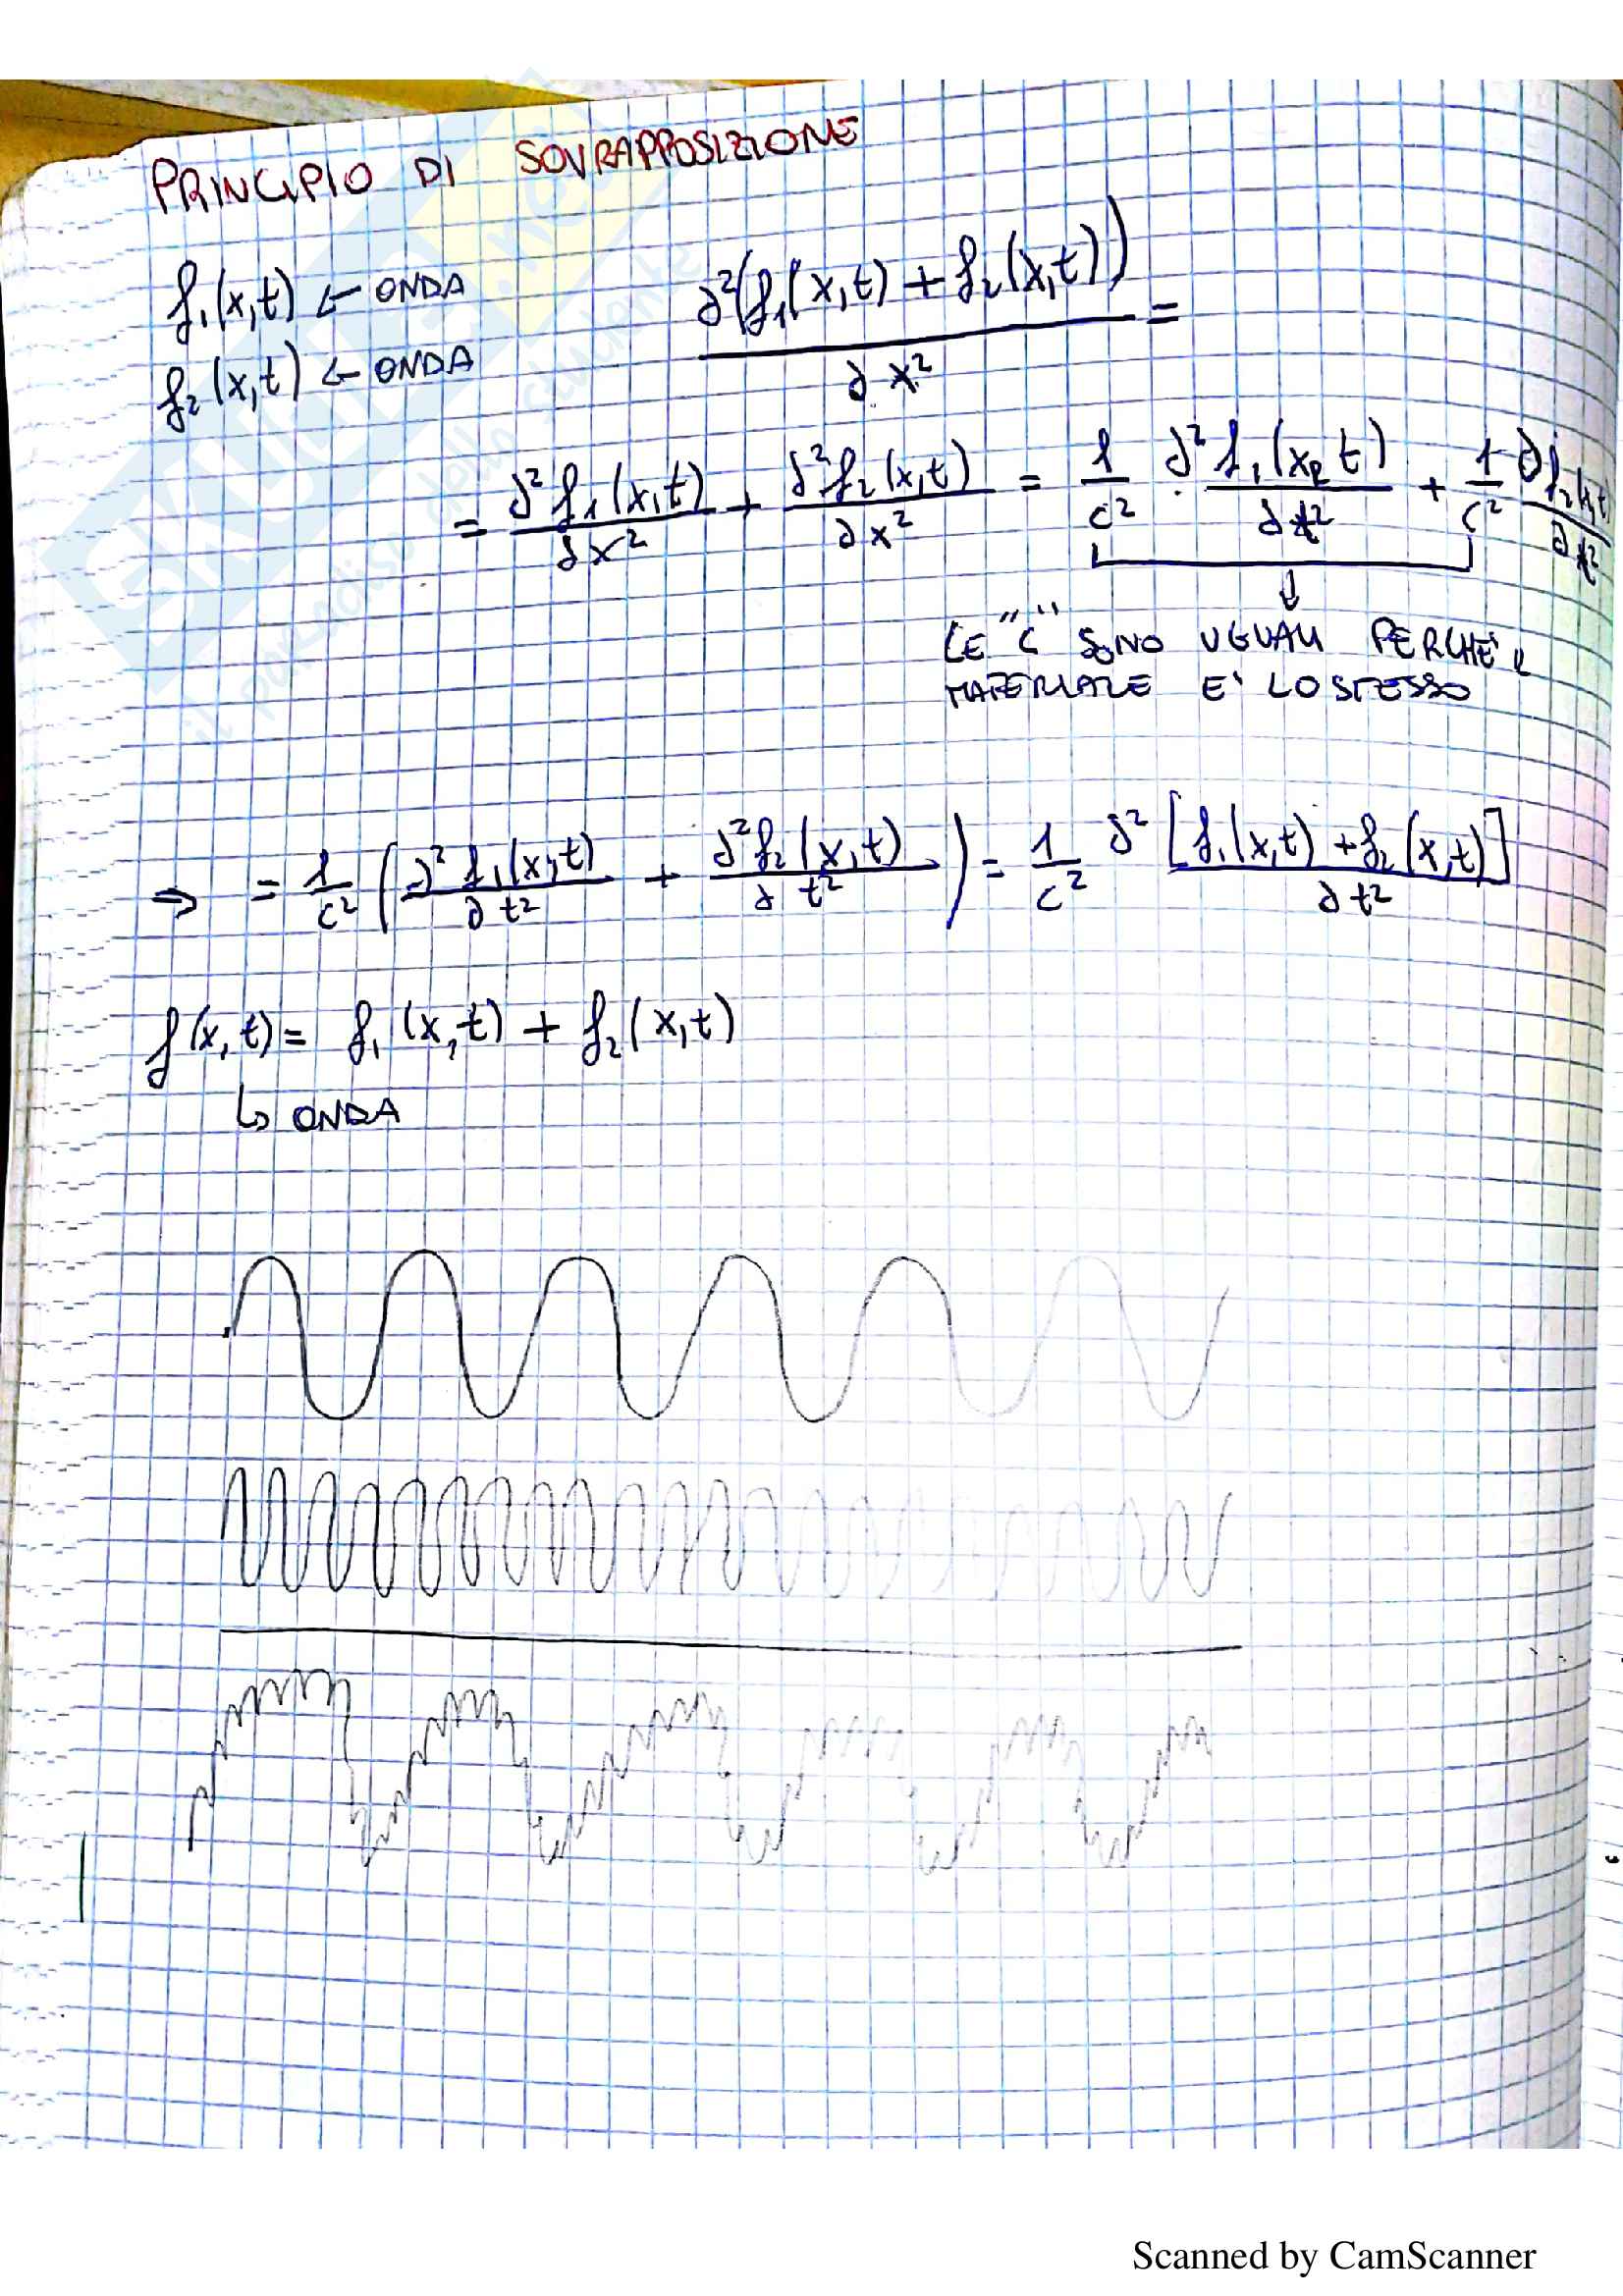 PRINCIPIO DI SOVRAPPOSIZIONE
f₁(x,t) ← ONDA
f₂(x,t) ← ONDA
∂²(f₁(x,t) + f₂(x,t)) / ∂x² =
= ∂²f₁(x,t)/∂x² + ∂²f₂(x,t)/∂x² = 1/c² · ∂²f₁(x,t)/∂t² + 1/c² ∂f₂(x,t)/∂t²
↓
LE "C" SONO UGUALI PERCHE' IL
MATERIALE E' LO STESSO
⇒ = 1/c² (∂²f₁(x,t)/∂t² + ∂²f₂(x,t)/∂t²) = 1/c² ∂²[f₁(x,t) + f₂(x,t)]/∂t²
f(x,t) = f₁(x,t) + f₂(x,t)
↳ ONDA
SKUOLA.net
il paradiso dello studente
Scanned by CamScanner